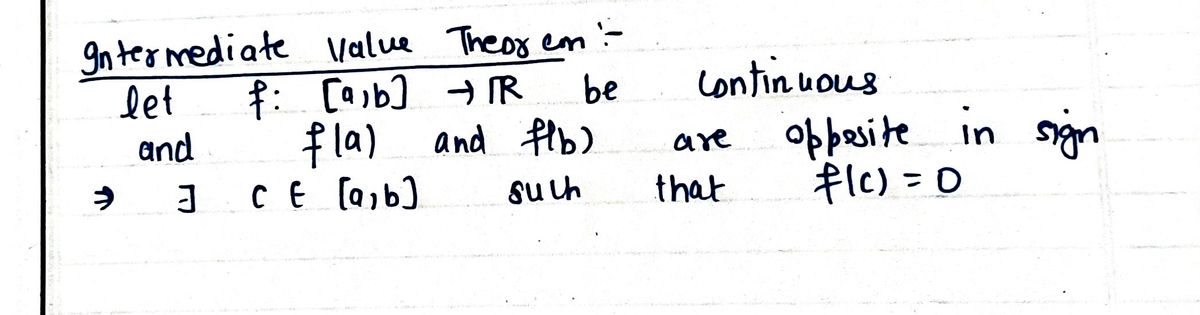 Intermediate Value Theorem :-
let f: [a,b] → ℝ be continuous
and f(a) and f(b) are opposite in sign
⇒ ∃ c ∈ [a,b] such that f(c) = 0